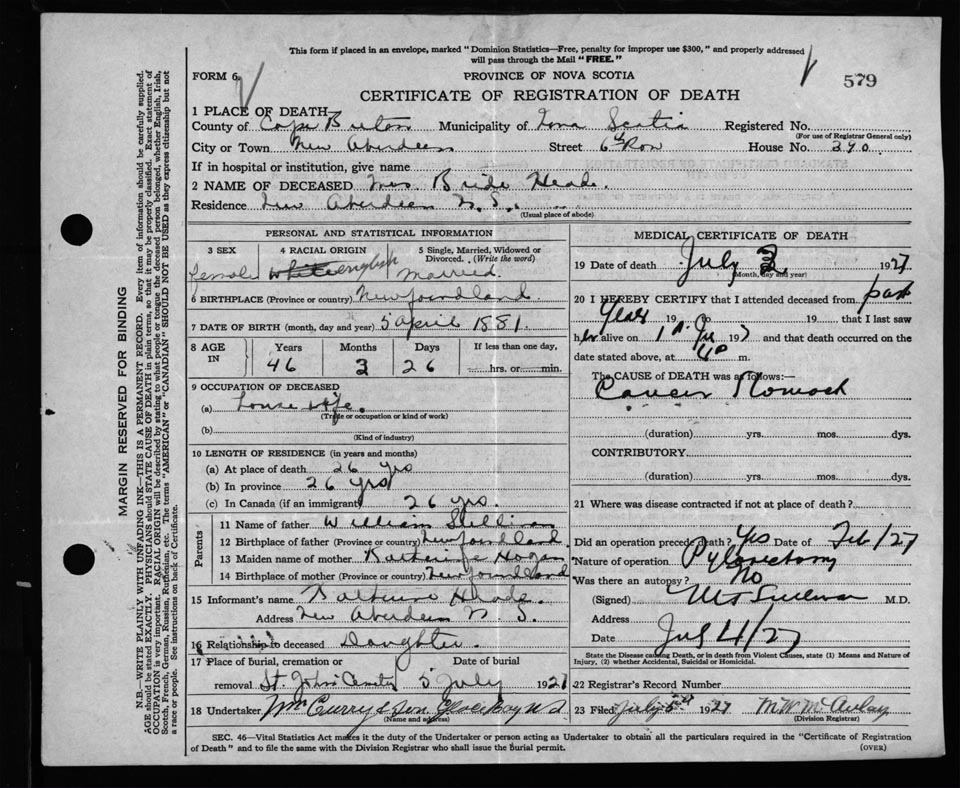 This form if placed in an envelope, marked "Dominion Statistics—Free, penalty for improper use $300," and properly addressed
will pass through the Mail "FREE."
FORM 6.
PROVINCE OF NOVA SCOTIA
579
CERTIFICATE OF REGISTRATION OF DEATH
1 PLACE OF DEATH
County of Cape Breton Municipality of Nova Scotia Registered No.
(For use of Registrar General only)
City or Town New Aberdeen Street 6th Row House No. 290.
If in hospital or institution, give name
2 NAME OF DECEASED Mrs Bride Heade.
Residence New Aberdeen N.S.
(Usual place of abode)
PERSONAL AND STATISTICAL INFORMATION
3 SEX 4 RACIAL ORIGIN 5 Single, Married, Widowed or
Divorced. (Write the word)
female white english married.
6 BIRTHPLACE (Province or country) Newfoundland.
7 DATE OF BIRTH (month, day and year) 5 april 1881.
8 AGE IN Years Months Days If less than one day,
46 3 26 hrs. or min.
9 OCCUPATION OF DECEASED
(a) house wife.
(Trade or occupation or kind of work)
(b)
(Kind of industry)
10 LENGTH OF RESIDENCE (in years and months)
(a) At place of death 26 yrs
(b) In province 26 yrs
(c) In Canada (if an immigrant) 26 yrs.
Parents
11 Name of father William
12 Birthplace of father (Province or country) Newfoundland
13 Maiden name of mother Katherine Hogan
14 Birthplace of mother (Province or country) Newfoundland
15 Informant's name
Address New Aberdeen N.S.
16 Relationship to deceased Daughter.
17 Place of Burial, cremation or Date of burial
removal St. John's Cemetry 5 July 1927
18 Undertaker Wm Curry & Son Glace Bay N S
(Name and address)
MEDICAL CERTIFICATE OF DEATH
19 Date of death July 3 1927
(Month, day and year)
20 I HEREBY CERTIFY that I attended deceased from past
Years 19 to 19 that I last saw
her alive on 1 193 and that death occurred on the
date stated above, at 4 p m.
The CAUSE OF DEATH was as follows:—
Cancer Stomach
(duration) yrs. mos. dys.
CONTRIBUTORY
(duration) yrs. mos. dys.
21 Where was disease contracted if not at place of death?
Did an operation precede death? Yes Date of Feb/27
Nature of operation
Was there an autopsy? No
(Signed) M.D.
Address
Date July 4/27
State the Disease causing Death, or in death from Violent Causes, state (1) Means and Nature of
Injury, (2) whether Accidental, Suicidal or Homicidal.
22 Registrar's Record Number
23 Filed July 5th 1927 M W McAulay
(Division Registrar)
SEC. 46—Vital Statistics Act makes it the duty of the Undertaker or person acting as Undertaker to obtain all the particulars required in the "Certificate of Registration
of Death" and to file the same with the Division Registrar who shall issue the burial permit.
(OVER)
MARGIN RESERVED FOR BINDING
N.B.—WRITE PLAINLY WITH UNFADING INK—THIS IS A PERMANENT RECORD. Every item of information should be carefully supplied.
AGE should be stated EXACTLY. PHYSICIANS should STATE CAUSE OF DEATH in plain terms, so that it may be properly classified. Exact statement of
OCCUPATION is very important. RACIAL ORIGIN will be described by stating to what people or tongue the deceased person belonged, whether English, Irish,
Scotch, French, German, Russian, Ruthenian, etc. The terms "AMERICAN" or "CANADIAN" SHOULD NOT BE USED as they express citizenship but not
a race or people. See instructions on back of Certificate.